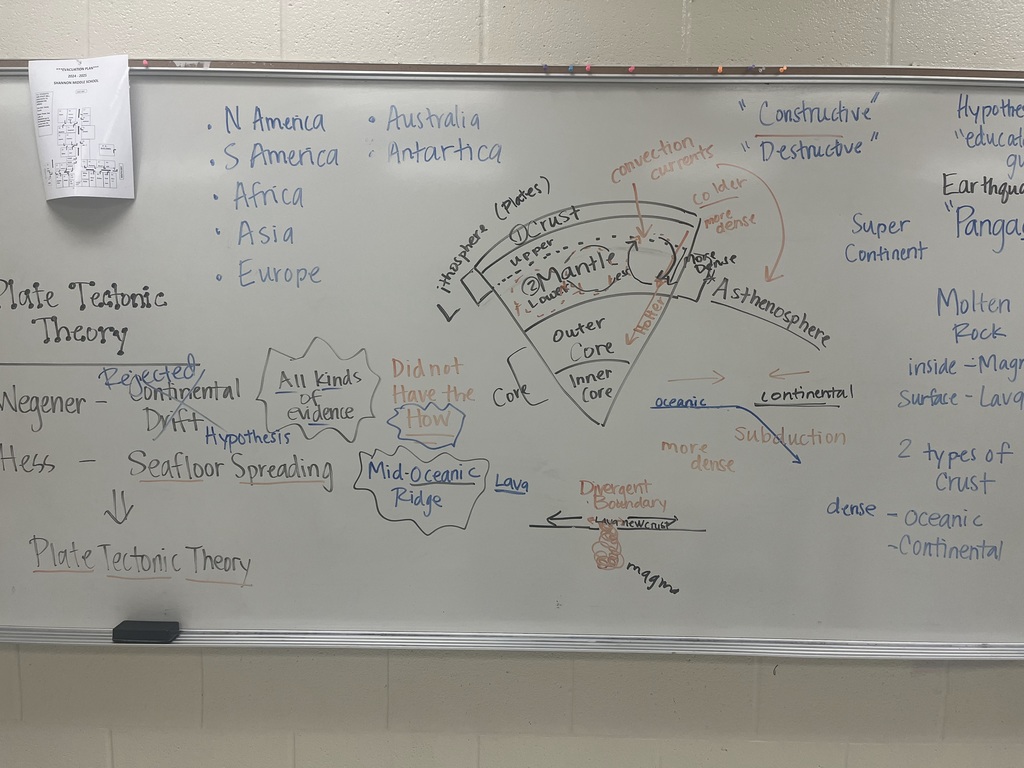 ***EVACUATION PLAN***
2024 - 2025
SHANNON MIDDLE SCHOOL
• N America
• S America
• Africa
• Asia
• Europe
• Australia
• Antartica
"Constructive"
"Destructive"
Hypothe
"educat
gu
Earthqua
"Panga
Super
Continent
convection
currents
colder
more
dense
ithosphere (Plates)
① Crust
upper
② Mantle
Lower
less
More
Dense
Hotter
Asthenosphere
Outer
Core
Inner
Core
Core
Plate Tectonic
Theory
Rejected
Wegener - Continental
Drift
Hypothesis
All Kinds
of
evidence
Did not
Have the
How
Hess - Seafloor Spreading
Mid-Oceanic
Ridge
Lava
Plate Tectonic Theory
oceanic
continental
Subduction
more
dense
Divergent
Boundary
Lava new crust
magma
Molten
Rock
inside - Magm
Surface - Lava
2 types of
Crust
dense - Oceanic
- Continental